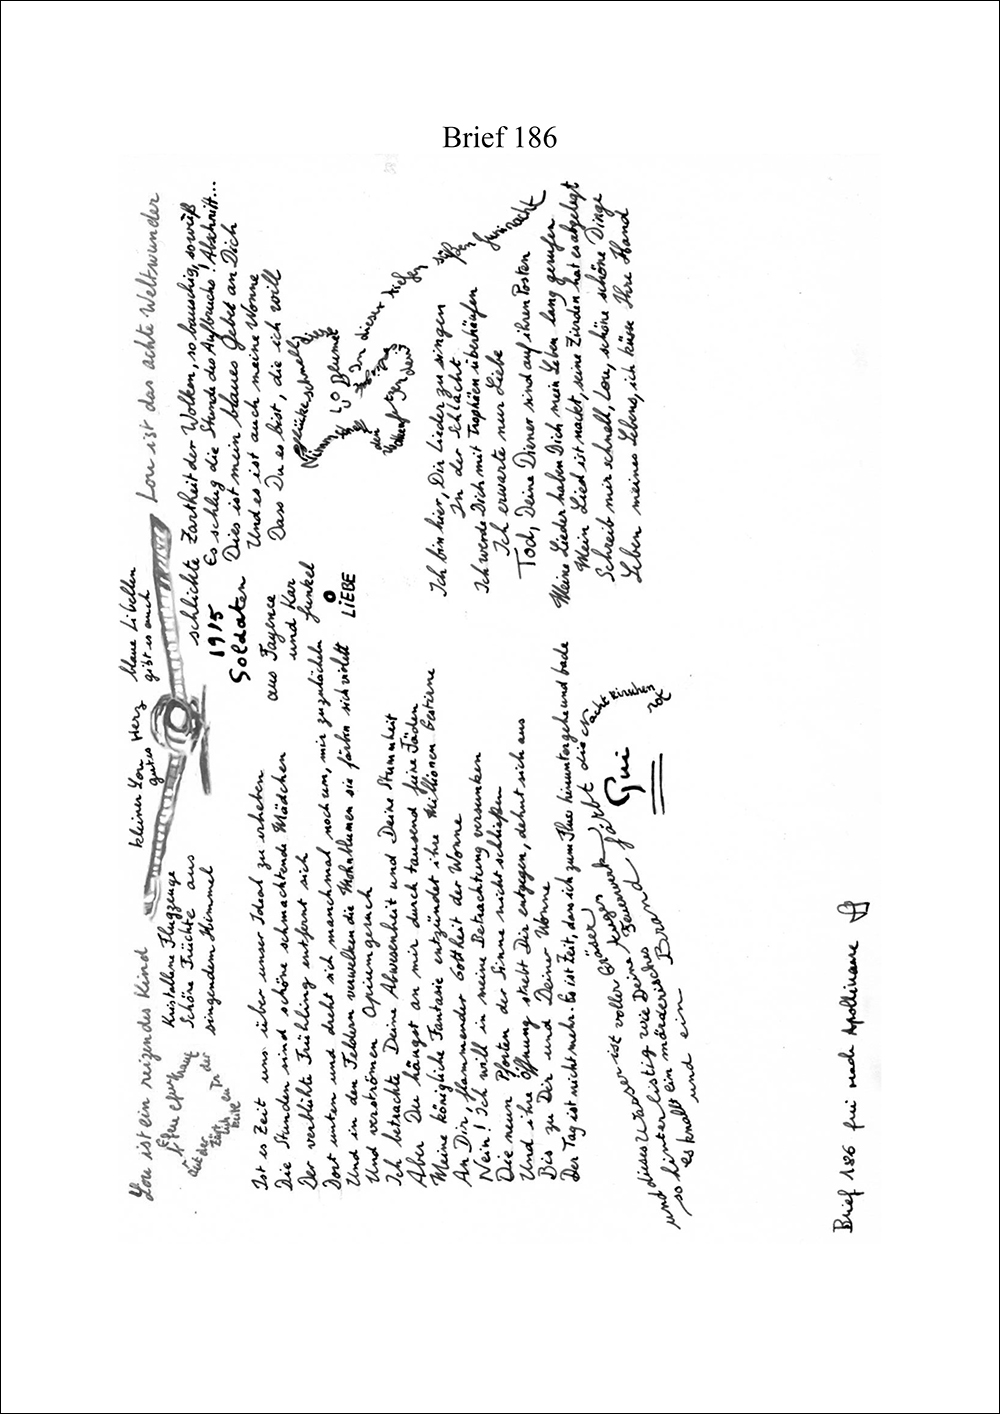 Brief 186
Lou ist ein reizendes Kind
Lou ist das achte Weltwunder
kleiner Lou
gutes Herz
blaue Libellen
gibt es auch
Kristallene Flugzeuge
Schöne Früchte aus
singendem Himmel
Efeu
auf der
zu
der
schlichte Zartheit der Wolken, so bauschig, so weiß
1915
Soldaten
aus Fayence
und Kar
funkel
O
LiEBE
Es schlug die Stunde des Aufbruchs! Abschnitt...
Dies ist mein blaues Gebet an Dich
Und es ist auch meine Wonne
Dass Du es bist, die ich will
Pflücke schnell die
LO Blume
Nimm
den
In dieser tiefen süßen
Ist es Zeit uns über unser Ideal zu erheben
Die Stunden sind schöne schmachtende Mädchen
Der verblühte Frühling entfernt sich
Dort unten und dreht sich manchmal noch um, mir zuzulächeln
Und in den Feldern verwelken die Mohnblumen sie färben sich violett
Und verströmen Opiumgeruch
Ich betrachte Deine Abwesenheit und Deine Stummheit
Aber Du hängst an mir durch tausend feine Fäden
Meine königliche Fantasie entzündet ihre Millionen Gestirne
An Dir, flammender Gottheit der Wonne
Nein! Ich will in meine Betrachtung versunken
Die neun Pforten der Sinne nicht schließen
Und ihre Öffnung strebt Dir entgegen, dehnt sich aus
Bis zu Dir und Deiner Wonne
Der Tag ist nicht mehr. Es ist Zeit, dass ich zum Fluss hinuntergehe und bade
und dieses Wasser ist voller Gräser
so hinterlistig wie Deine kurzes Feuerwerk färbt die Nacht kirschen
rot
es knallt ein mörderisches Brand
und ein
Gui
Ich bin hier, Dir Lieder zu singen
In der Schlacht
Ich werde Dich mit Trophäen überhäufen
Ich erwarte nur Liebe
Tod, Deine Diener sind auf ihren Posten
Meine Lieder haben Dich mein Leben lang gerufen
Mein Lied ist nackt, seine Zünden hat es abgelegt
Schreib mir schnell, Lou, schöne schöne Dinge
Leben meines Lebens, ich küsse Ihre Hand
Brief 186 frei nach Apollinaire